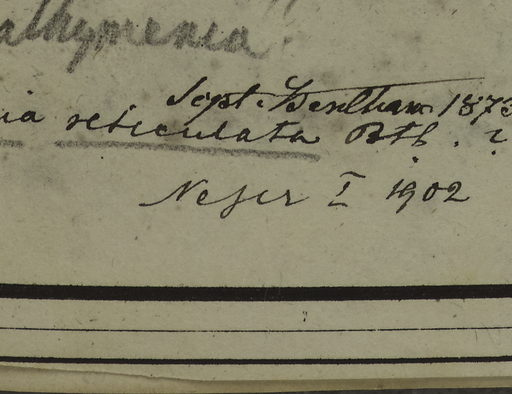 athymenia
Sept. Bentham 1873
ia reticulata Bth. ?
Neger I 1902